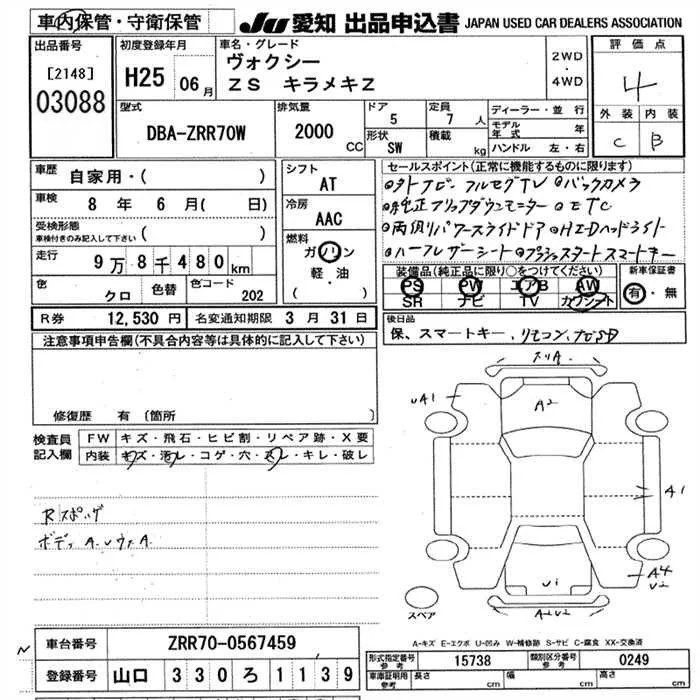 車内保管・守衛保管 JU 愛知 出品申込書 JAPAN USED CAR DEALERS ASSOCIATION
出品番号 [2148] 03088
初度登録年月 H25 06月
車名・グレード ヴォクシー
ZS キラメキZ
2WD・4WD
評価点 4
外装 内装
C B
型式 DBA-ZRR70W
排気量 2000 CC
ドア 5 定員 7 人
形状 SW 積載 kg
ディーラー・並行
モデル年式 年
ハンドル 左・右
車歴 自家用・( )
車検 8年 6月( 日)
受検形態
車検付きのみ記入して下さい ( )
走行 9万8千480km
色 クロ 色替 色コード 202
シフト AT
冷房 AAC
燃料 ガソリン
軽・油
( )
セールスポイント(正常に機能するものに限ります)
フルセグTV ◎バックカメラ
◎純正フリップダウンモニター ◎ETC
◎両側パワースライドドア ◎HIDヘッドライト
◎ハーフレザーシート ◎プッシュスタートスマートキー
装備品(純正品に限り○をつけてください) 新車保証書
PS PW エアB AW 有・無
SR ナビ TV カワシート
R券 12,530円 名変通知期限 3月31日
後日品
保、スマートキー、リモコン、ナビSD
注意事項申告欄(不具合内容等は具体的に記入して下さい)
修復歴 有 〔箇所
検査員記入欄
FW キズ・飛石・ヒビ割・リペア跡・X要
内装 キズ・汚レ・コゲ・穴・スレ・キレ・破レ
Rスポッゲ
ボディ A.Uウス A.
スリA
UA1
A2
A1
A4
U2
U1
A2U2
スペア
A-キズ E-エクボ U-凹み W-補修跡 S-サビ C-腐食 XX-交換済
車台番号 ZRR70-0567459
登録番号 山口 330 ろ 1139
型式指定番号 参考 15738 類別区分番号 参考 0249
車庫証明用 参考 長さ cm 幅 cm 高さ cm